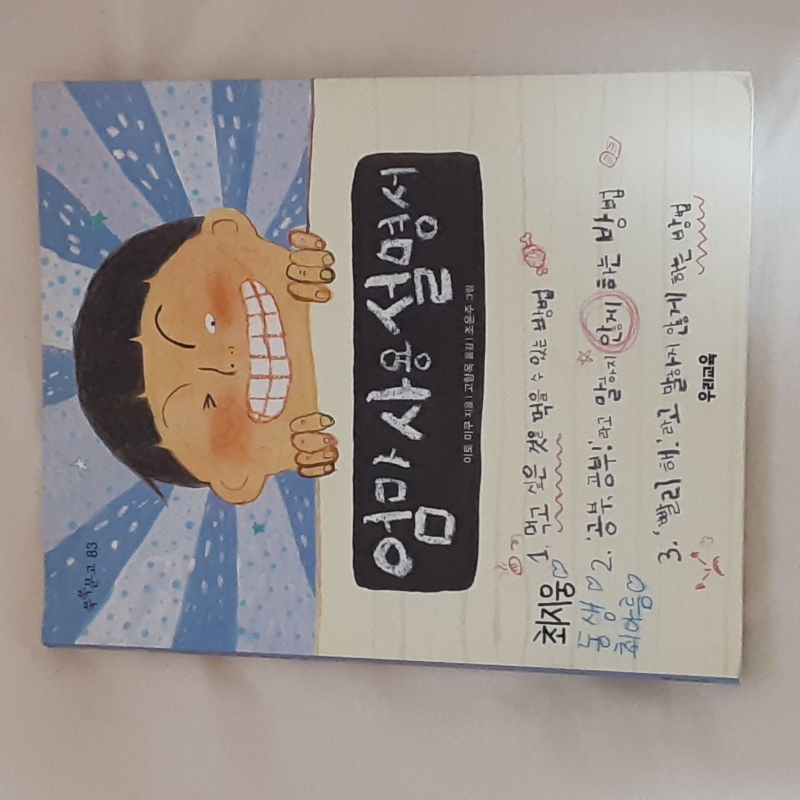 쑥쑥문고 83
엄마 사용 설명서
이토 미쿠 지음 | 고향옥 옮김 | 조윤주 그림
1. 먹고 싶은 것을 먹을 수 있는 방법
2. '공부, 공부!'라고 말하지 않게 하는 방법
3. '빨리 해.'라고 말하지 않게 하는 방법
최지웅
동생
최아름
우리교육